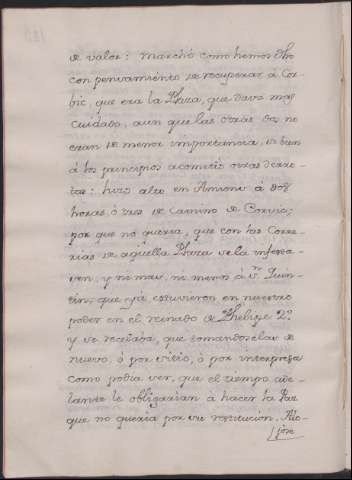 de valor: marchó como hemos dho
con pensamiento de recuperar á Cor-
bie, que era la Plaza, que dava mas
cuidado, aun que las otras dos no
eran de menor importancia, ni tan
á los principios acometió otras
hizo alto en Amiens á dos
horas, ó tres de camino de Corvie;
por que no queria, que con las Corre-
rias de aquella Plaza se la infesta-
sen, y ni mas, ni menos á Sn. Quin-
tin, que yá estuvieron en nuestro
poder en el reinado de Phelipe 2º.
y se recelaba, que tomandoselas de
nuevo, ó por sitio, ó por interpresa
como podia ser, que el tiempo ade-
lante le obligarian á hacer la Paz
que no queria por su restitucion. Me-
jore